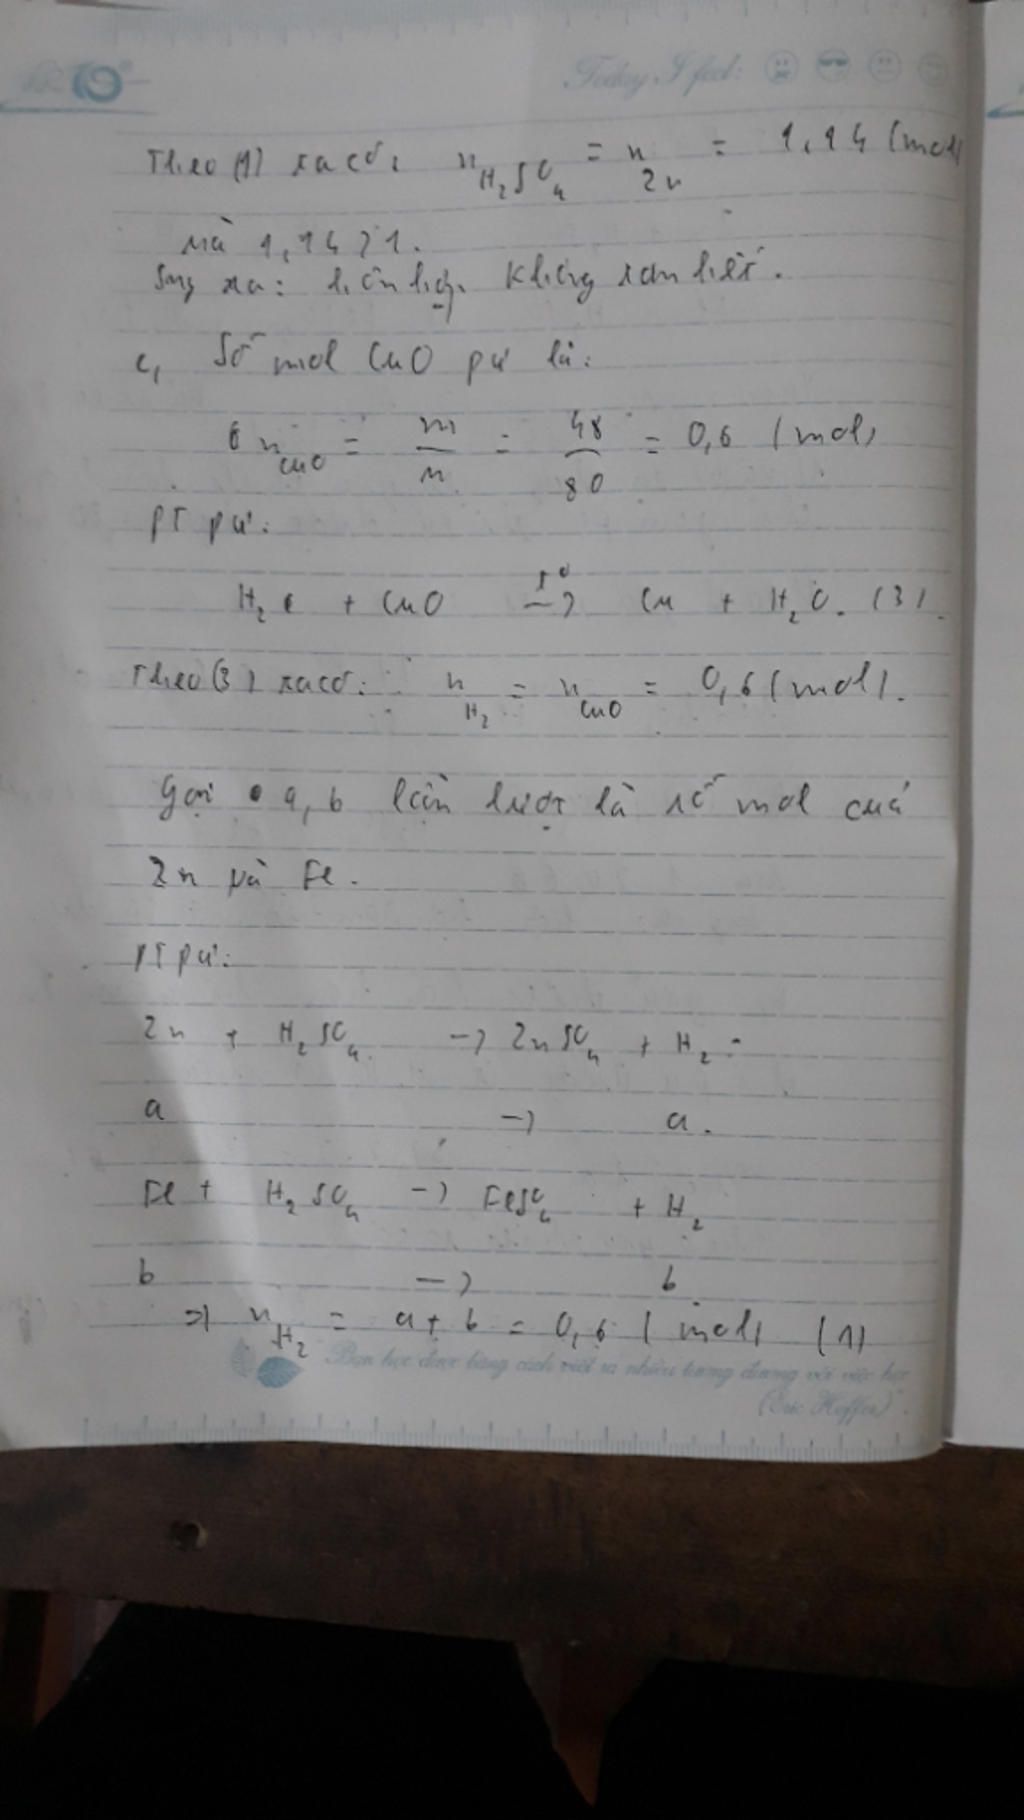 Today I feel:
Theo (1) ta có: n H₂SO₄ = n Zn = 1,14 (mol)
mà 1,14 > 1.
Suy ra: hỗn hợp không tan hết.
c, Số mol CuO pư là:
n CuO = m/M = 48/80 = 0,6 (mol)
PT pư:
H₂ + CuO t° → Cu + H₂O. (3).
Theo (3) ta có: n H₂ = n CuO = 0,6 (mol).
Gọi a, b lần lượt là số mol của
Zn và Fe.
PT pư:
Zn + H₂SO₄ → ZnSO₄ + H₂
a → a.
Fe + H₂SO₄ → FeSO₄ + H₂
b → b
=> n H₂ = a + b = 0,6 (mol) (1)
Bạn học được bằng cách viết ra nhiều tương đương với việc học
(Eric Hoffer).